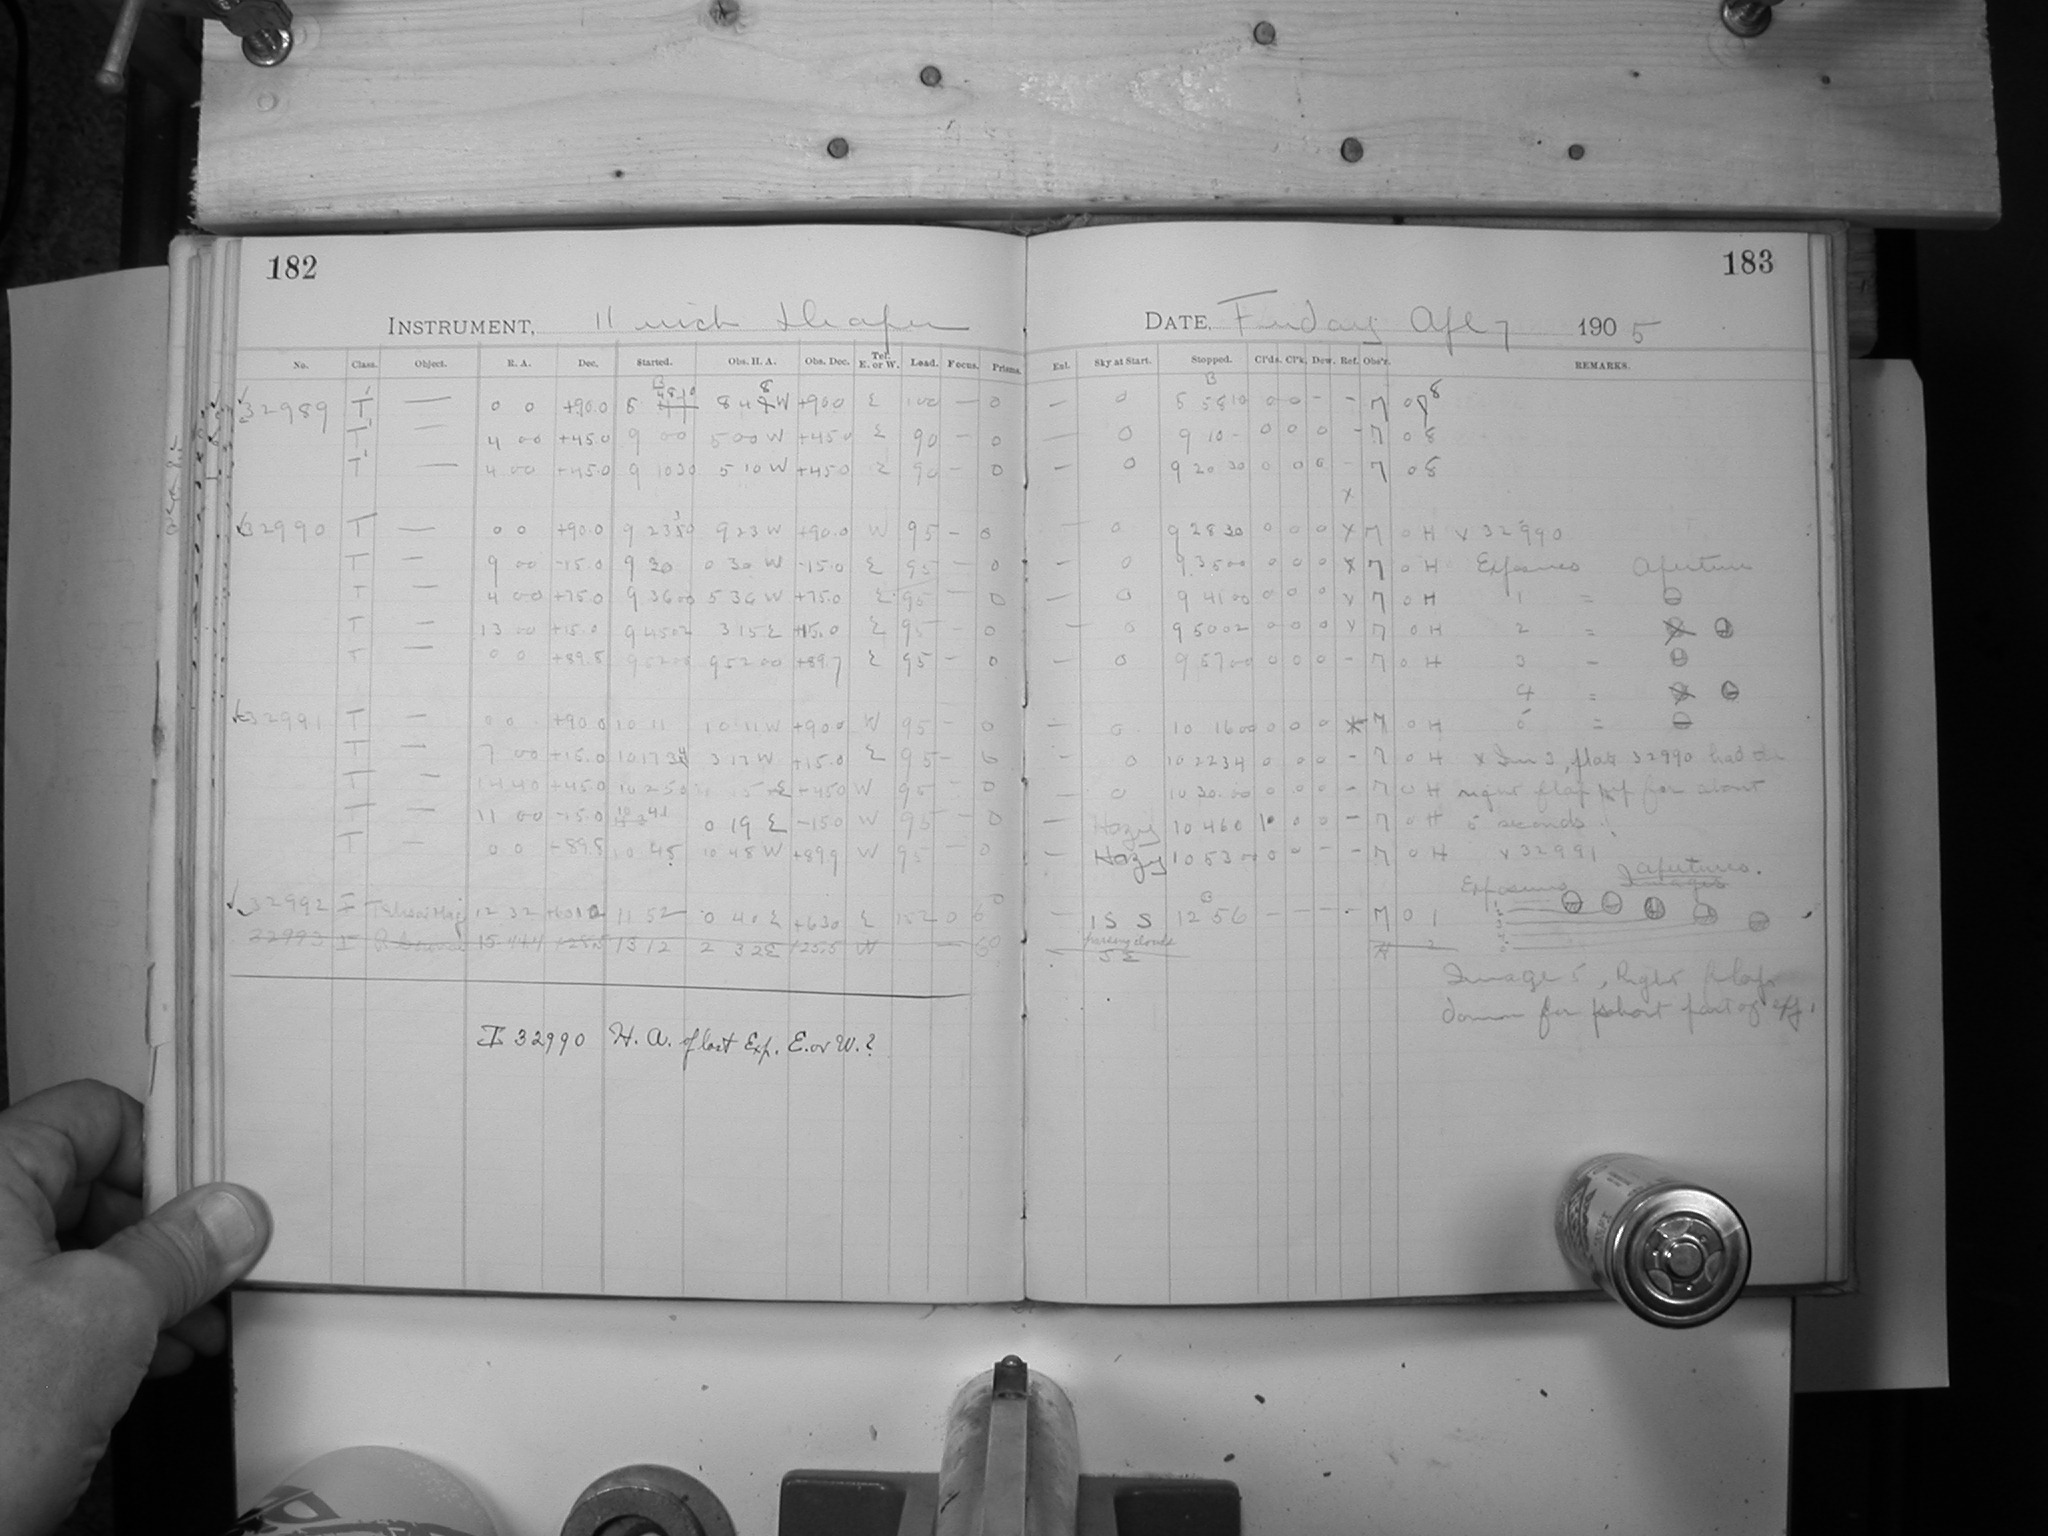 182
INSTRUMENT, 11 inch Draper
No. Class. Object. R. A. Dec. Started. Obs. H. A. Obs. Dec. Tel. E. or W. Load. Focus. Prisms.
32989 T' — 0 0 +90.0 8 48 10 8 48 W +90.0 E 100 — 0
T' — 4 00 +45.0 9 00 5 00 W +45.0 E 90 — 0
T' — 4 00 +45.0 9 10 30 5 10 W +45.0 E 90 — 0
32990 T — 0 0 +90.0 9 23 30 9 23 W +90.0 W 95 — 0
T — 9 00 -15.0 9 30 0 30 W -15.0 E 95 — 0
T — 4 00 +75.0 9 36 00 5 36 W +75.0 E 95 — 0
T — 13 00 +15.0 9 45 02 3 15 E +15.0 E 95 — 0
T — 0 0 +89.8 9 52 00 9 52 00 +89.7 E 95 — 0
32991 T — 0 0 +90.0 10 11 10 11 W +90.0 W 95 — 0
T — 7 00 +15.0 10 17 34 3 17 W +15.0 E 95 — 0
T — 14 40 +45.0 10 25 0 E +45.0 W 95 — 0
T — 11 00 -15.0 10 41 0 19 E -15.0 W 95 — 0
T — 0 0 -89.8 10 48 10 48 W +89.9 W 95 — 0
32992 I 12 32 11 52 0 40 E +63.0 E 152 0 6
32993 I 15 44.4 +28.5 13 12 2 32 E W — 60
I 32990 H. A. of last Exp. E. or W.?
183
DATE, Friday Apl 7 1905
Enl. Sky at Start. Stopped. Cl'ds. Cl'k. Dew. Ref. Obs'r. REMARKS.
— 0 8 58 10 0 0 - - 7 0 8
— 0 9 10 - 0 0 0 - 7 0 8
— 0 9 20 30 0 0 0 - 7 0 8
x
— 0 9 28 30 0 0 0 x 7 0 H x 32990
— 0 9 35 00 0 0 0 x 7 0 H Exposures Aperture
— 0 9 41 00 0 0 0 x 7 0 H 1 =
— 0 9 50 02 0 0 0 x 7 0 H 2 =
— 0 9 57 00 0 0 0 - 7 0 H 3 =
4 =
— 0 10 16 00 0 0 0 x 7 0 H 5 =
— 0 10 22 34 0 0 0 - 7 0 H x Im 3, plate 32990 had the
— 0 10 30 00 0 0 0 - 7 0 H right flap up for about
— Hazy 10 46 0 1 0 0 - 7 0 H 5 seconds!
— Hazy 10 53 0 0 - - 7 0 H x 32991
Exposures Images apertures.
— 1S S 12 56 - - - - 7 0 1
passing clouds
Image 5, Right flap
down for short part of exp.